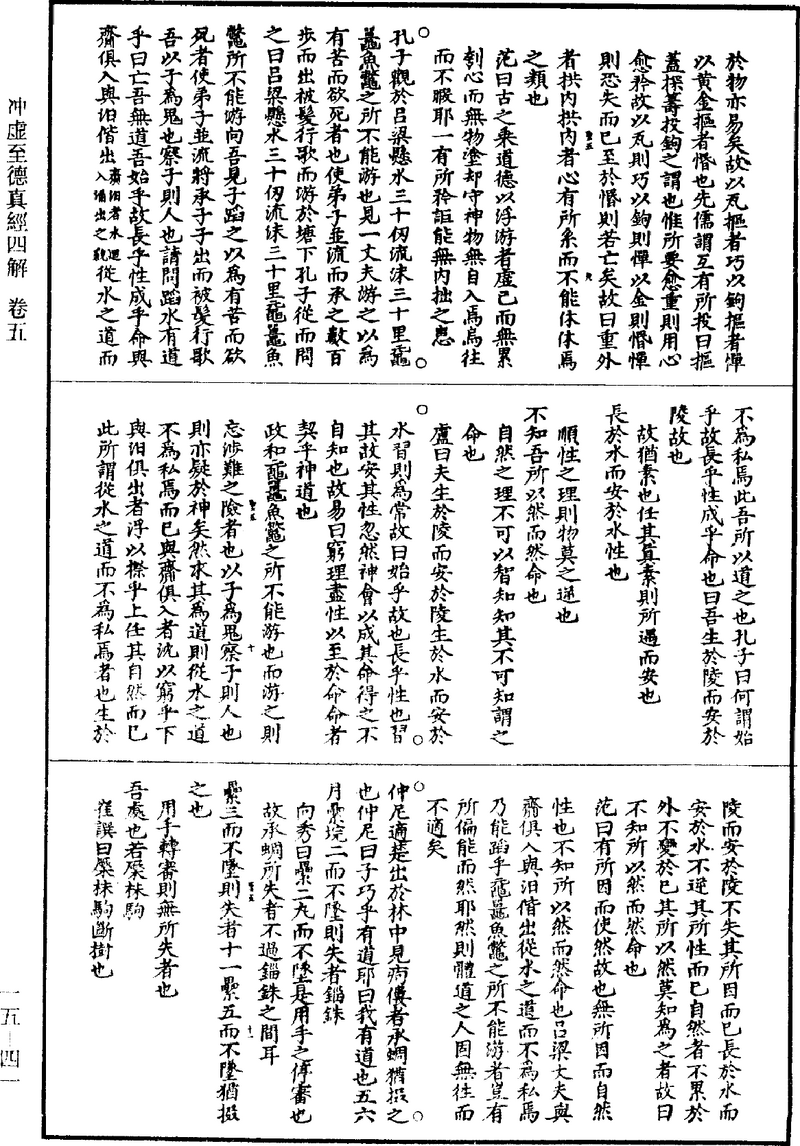 於物亦易矣故以瓦摳者巧以鉤摳者憚
以黄金摳者惛也先儒謂互有所投曰摳
蓋探籌投鉤之謂也惟所要愈重則用心
愈矜故以瓦則巧以鉤則憚以金則惛憚
則恐矣而已至於惛則若亡矣故曰重外
者拱内拱内者心有所系而不能休休焉
之類也
范曰古之乘道德以浮游者虛己而無累
刳心而無物塗却守神物無自入焉烏往
而不暇耶一有所矜詎能無内拙之患
孔子觀於呂梁懸水三十仞流沫三十里黿
鼉魚鼈之所不能游也見一丈夫游之以為
有苦而欲死者也使弟子並流而承之數百
步而出被髮行歌而游於塘下孔子從而問
之曰呂梁懸水三十仞流沫三十里黿鼉魚
鼈所不能游向吾見子蹈之以為有苦而欲
死者使弟子並流將承子子出而被髮行歌
吾以子為鬼也察子則人也請問蹈水有道
乎曰亡吾無道吾始乎故長乎性成乎命與
齎俱入與汩偕出齎汩者水迴入涌出之貌從水之道而
不為私焉此吾所以道之也孔子曰何謂始
乎故長乎性成乎命也曰吾生於陵而安於
陵故也
故猶素也任其真素則所遇而安也
長於水而安於水性也
順性之理則物莫之逆也
不知吾所以然而然命也
自然之理不可以智知知其不可知謂之
命也
盧曰夫生於陵而安於陵生於水而安於
水習則為常故曰始乎故也長乎性也習
其故安其性忽然神會以成其命得之不
自知也故易曰窮理盡性以至於命命者
契乎神道也
政和黿鼉魚鼈之所不能游也而游之則
忘涉難之險者也以子為鬼察子則人也
則亦疑於神矣然求其為道則從水之道
不為私焉而已與齎俱入者沈以窮乎下
與汩俱出者浮以際乎上任其自然而已
此所謂從水之道而不為私焉者也生於
陵而安於陵不失其所因而已長於水而
安於水不逆其所性而已自然者不累於
外不變於己其所以然莫知為之者故曰
不知所以然而然命也
范曰有所因而使然故也無所因而自然
性也不知所以然而然命也呂梁丈夫與
齎俱入與汩偕出從水之道而不為私焉
乃能蹈乎黿鼉魚鼈之所不能游者豈有
所偏能而然耶然則體道之人因無往而
不適矣
仲尼適楚出於林中見痀僂者承蜩猶掇之
也仲尼曰子巧乎有道耶曰我有道也五六
月纍垸二而不墜則失者錙銖
向秀曰纍二丸而不墜是用手之停審也
故承蜩所失者不過錙銖之間耳
纍三而不墜則失者十一纍五而不墜猶掇
之也
用手轉審則無所失者也
吾處也若橜株駒
崔譔曰橜株駒斷樹也
冲虛至德真經四解 卷五
一五—四一